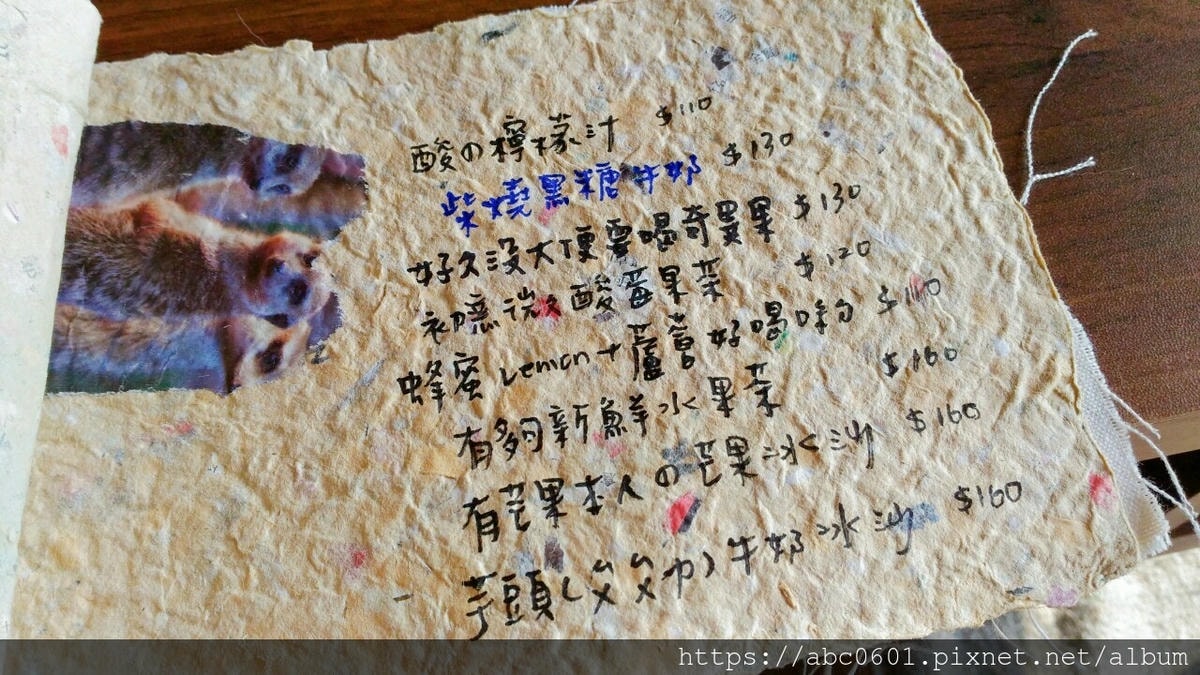 酸の檸檬汁 $110
柴燒黑糖牛奶 $130
好久沒大便要喝奇異果 $130
初戀微酸莓果茶 $120
蜂蜜Lemon+蘆薈好喝喲 $110
有夠新鮮水果茶 $160
有芒果本人の芒果冰沙 $160
芋頭(ㄠㄠㄉㄟ)牛奶冰沙 $160
https://abc0601.pixnet.net/album